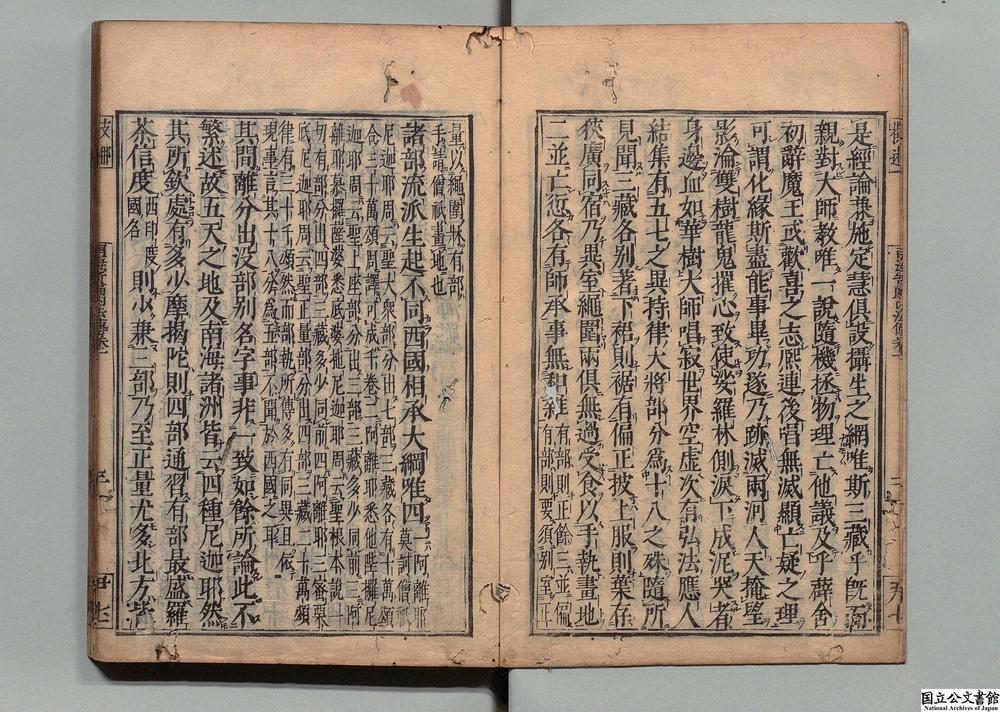 是經論兼施定慧俱設攝生之網唯斯三藏乎既而
親對大師教唯一說隨機拯物理亡他議及乎薜舍
初辭魔王或歡喜之志熙連後唱無滅顯亡疑之理
可謂化緣斯盡能事畢功遂乃跡滅兩河人天掩望
影淪雙樹龍鬼摧心致使娑羅林側淚下成泥哭者
身邊血如華樹大師唱寂世界空虛次有弘法應人
結集有五七之異持律大將部分為十八之殊隨所
見聞三藏各別著下裙則裾有偏正披上服則葉存
狹廣同宿乃異室繩圍兩俱無過受食以手執畫地
二並亡愆各有師承事無和雜有部則正餘三並偏有部則要須別室正
量以繩圍牀有部手請僧祇畫地也
諸部流派生起不同西國相承大綱唯四一阿離耶莫訶僧祇
尼迦耶周云聖大衆部分出七部三藏各有十萬頌
合三十萬頌周譯可成千卷二阿離耶悉他陛攞尼
迦耶周云聖上座部分出三部三藏多少同前三阿
離耶慕攞薩婆悉底婆拖尼迦耶周云聖根本說一
切有部分出四部三藏多少同前四阿離耶三蜜栗
底尼迦耶周云聖正量部分出四部三藏二十萬頌
律有三十千頌然而部執所傳多有同異且依
現事言其十八分為五部不聞於西國之耳
其間離分出沒部別名字事非一致如餘所論此不
繁述故五天之地及南海諸洲皆云四種尼迦耶然
其所欽處有多少摩揭陀則四部通習有部最盛羅
荼信度西印度國名則少兼三部乃至正量尤多北方皆
国立公文書館
National Archives of Japan